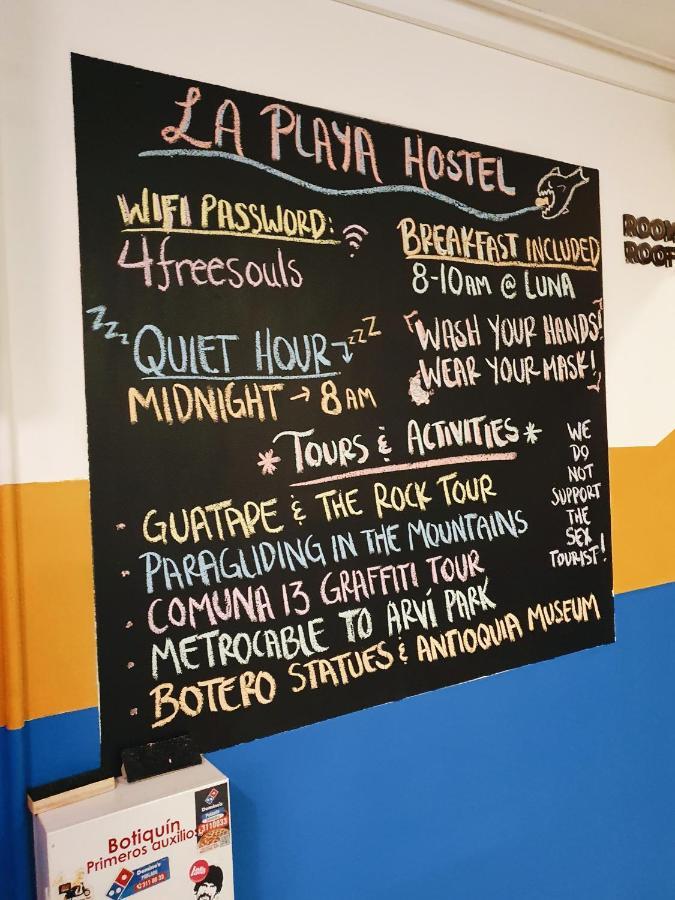 LA PLAYA HOSTEL
WIFI PASSWORD:
4freesouls
BREAKFAST INCLUDED
8-10AM @ LUNA
ZZZ QUIET HOUR ZZZ
MIDNIGHT → 8 AM
WASH YOUR HANDS!
WEAR YOUR MASK!
* TOURS & ACTIVITIES *
- GUATAPE & THE ROCK TOUR
- PARAGLIDING IN THE MOUNTAINS
- COMUNA 13 GRAFFITI TOUR
- METROCABLE TO ARVÍ PARK
- BOTERO STATUES & ANTIOQUIA MUSEUM
WE
DO
NOT
SUPPORT
THE
SEX
TOURIST!
ROOM
ROOF
Botiquín
Primeros auxilios
Domino's
Domino's